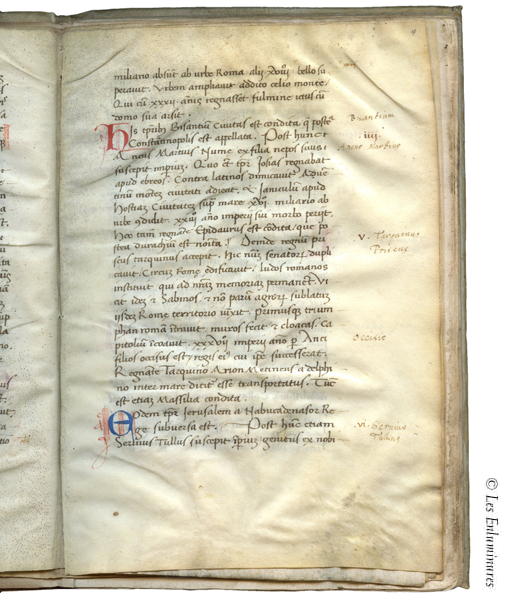 miliario absũt ab urbe Roma alii xviij bello su
peravit. Urbem ampliavit addito celio monte.
Qui cũ xxxij annis regnasset fulmine ictus cũ
domo sua arsit.
His tp̃ribus Bisantiũ Civitas est condita q̃ postea
Constantinopolis est appellata. Post hunc
Ancus Martius Nume ex filia nepos suus
suscepit imperiũ. Quo et tpr̃ Iosias regnabat
apud ebreos. Contra latinos dimicavit Aven
tinũ mõtez civitati adiecit. & Ianiculũ apud
Hostiaz Civitatez sup mare xvj miliario ab
urbe 9didit. xxiij anno imperii sui morbo perijt.
Hoc tam̃ regnãte Epidaurus est cõdita, que po
stea durachiũ est noĩta. Deinde regnũ pri
scus tarquinius accepit. Hic nũm senatorum dupli
cavit. Circũ Rome edificavit. ludos romanos
instituit qui ad nr̃am memoriaz permanẽt. Vi
cit idez & Sabinos. & nõ parũ agrorum sublatũ
ijsdez Rome territorio iũxit. primusq trium
phan romã ĩtravit. muros fecit & cloacas. Ca
pitoliũ ĩcoavit. xxxvij imperij anno p Anci
filios occisus est regis ei cui ipse successerat.
Regnãte Tarquino Arion Metineus a delphi
no in ter mare dicit esse transportatus. Tũc
est etiaz Massilia condita.
Eodem tpr̃ Ierusalem a Nabucadenasor Re
ge subversa est. Post hũc etiam
Servius Tullus suscepit ĩperiuz genitus ex nobi
Bisantium
iiij
Ancus Martius
v. Tarquinus
Priscus
Occisio
vi. Servius
Tullius
© Les Enluminures